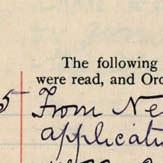 The following
were read, and Ord
5 From Ne
applicati